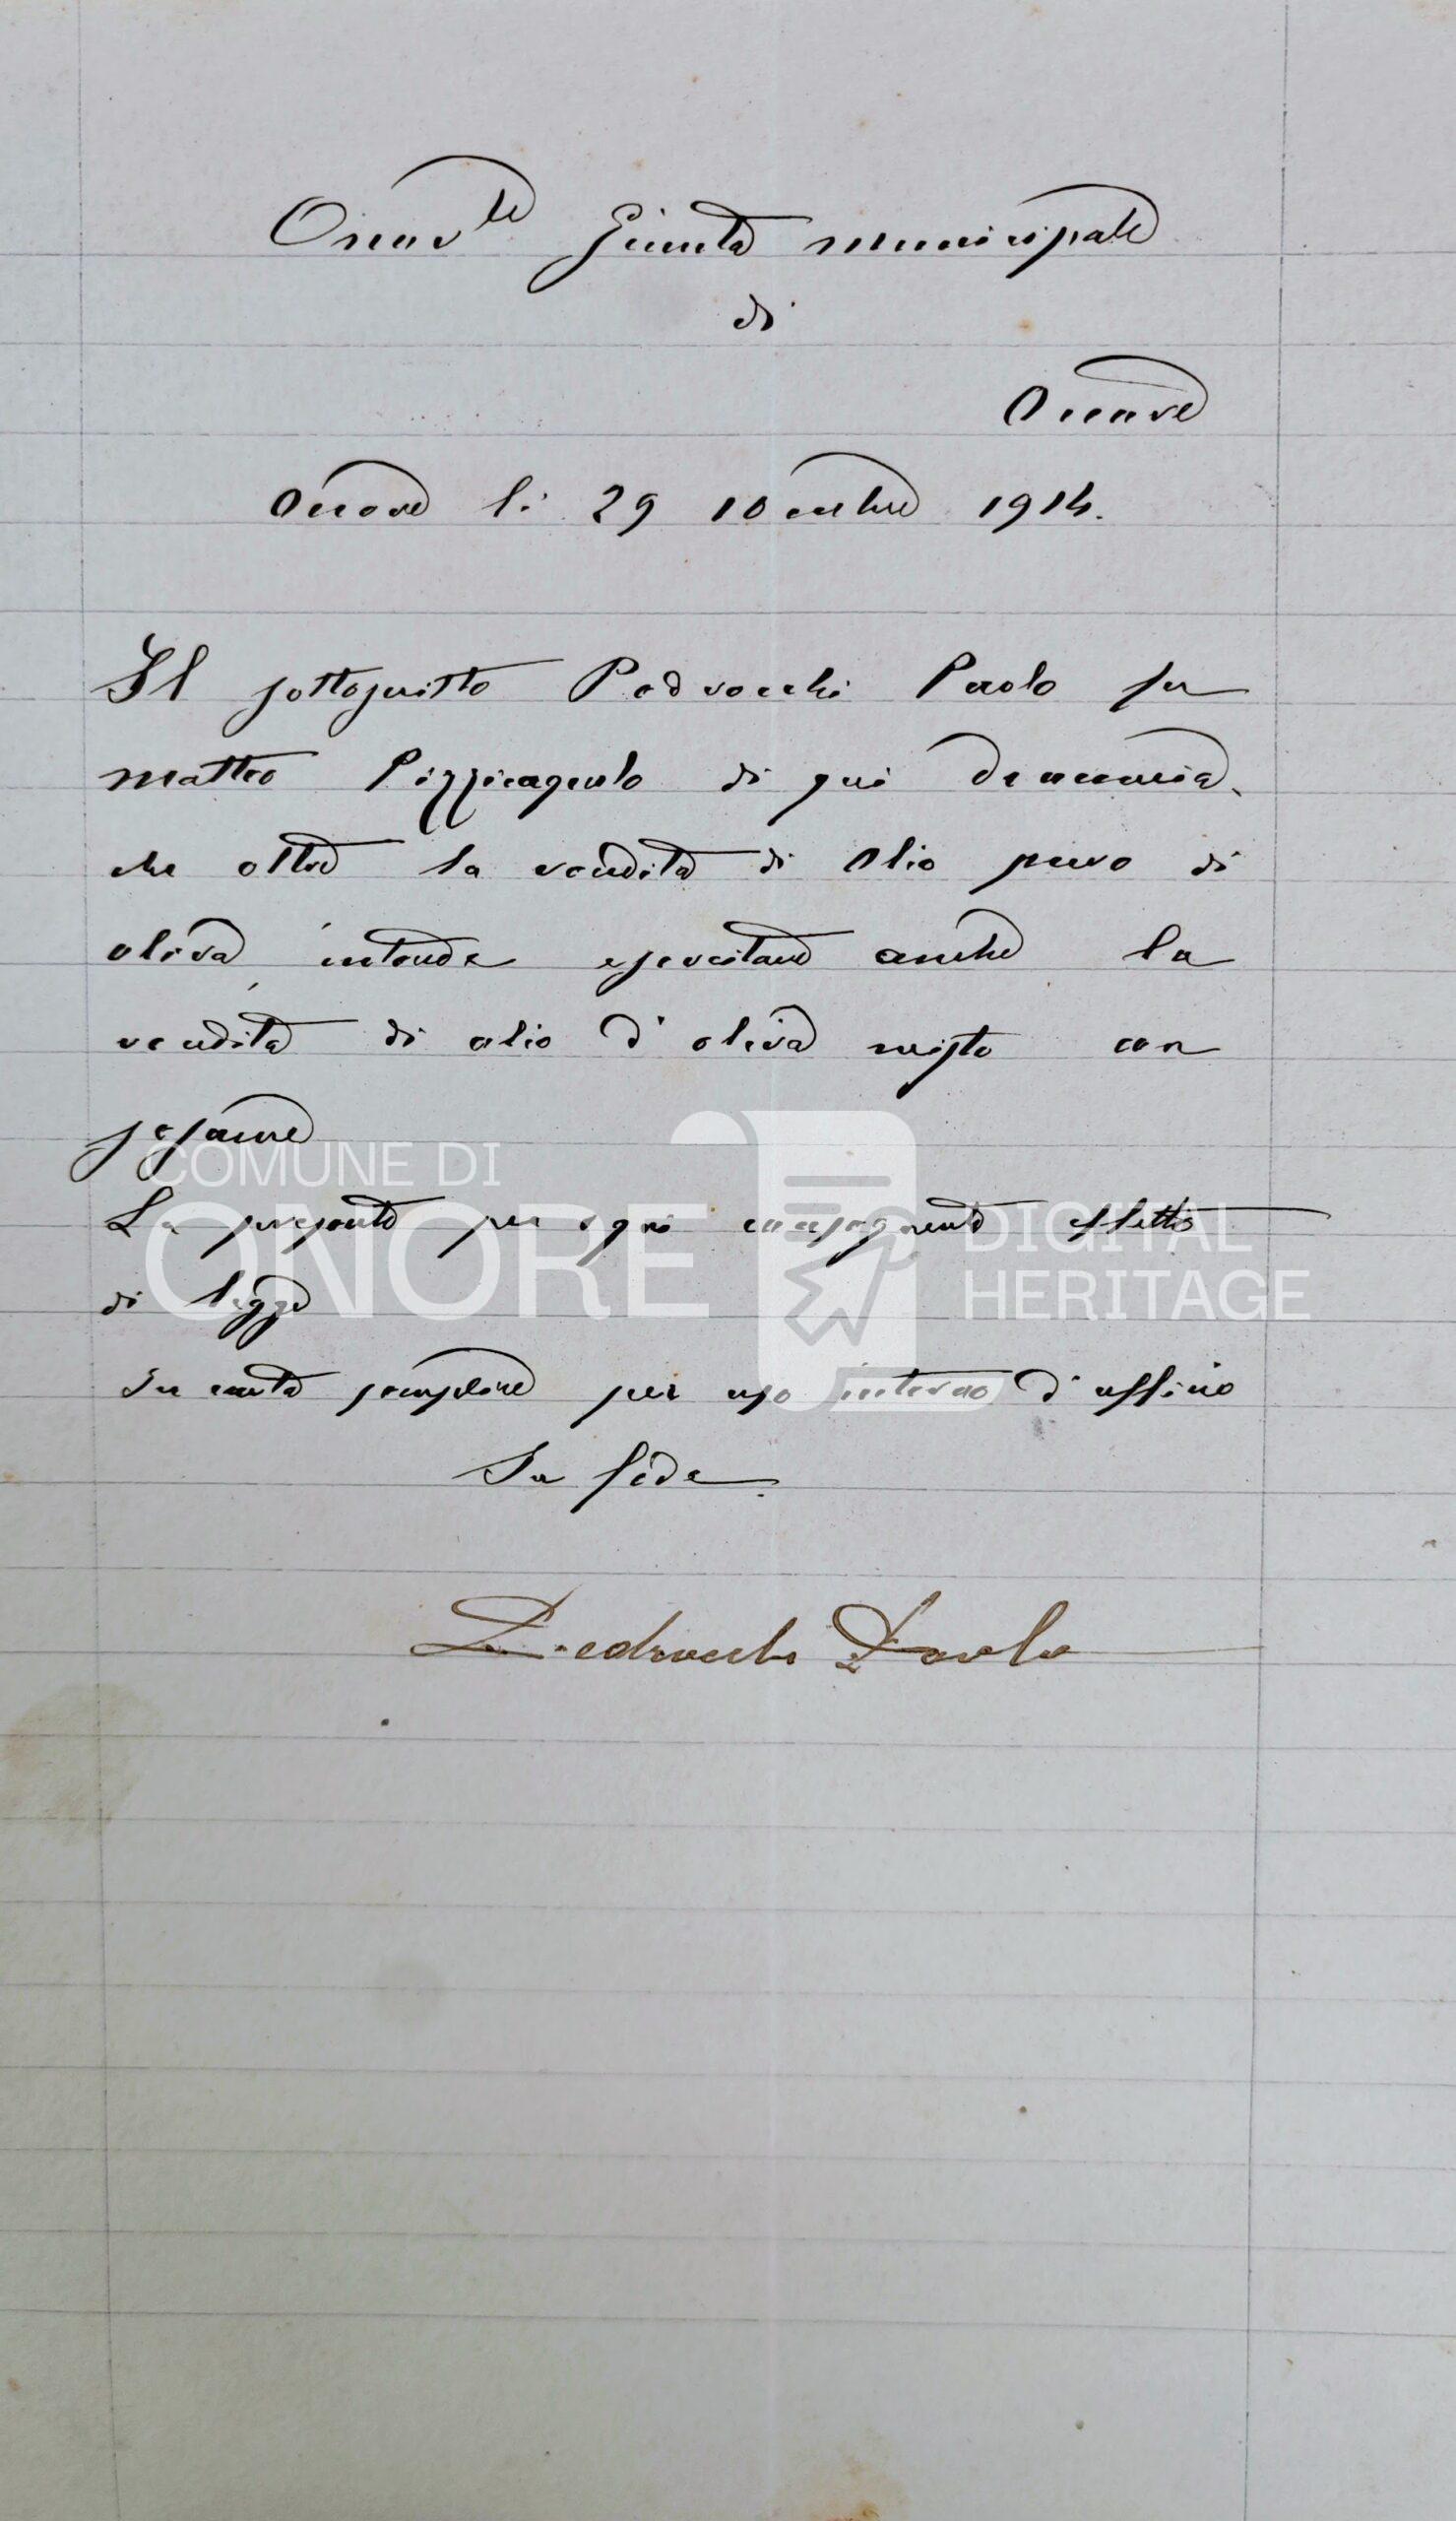 Onor^le Giunta municipale
di
Onore
Onore li 29 10embre 1914.
Il sottoscritto Pedrocchi Paolo fu
Matteo Pizzicagnolo di qui denuncia
che oltre la vendita di olio puro di
oliva intende esercitare anche la
vendita di olio d'oliva misto con
sesame
COMUNE DI
ONORE
DIGITAL
HERITAGE
La presente per ogni conseguente effetto
di legge
In carta semplice per uso interno d'ufficio
In fede
Pedrocchi Paolo